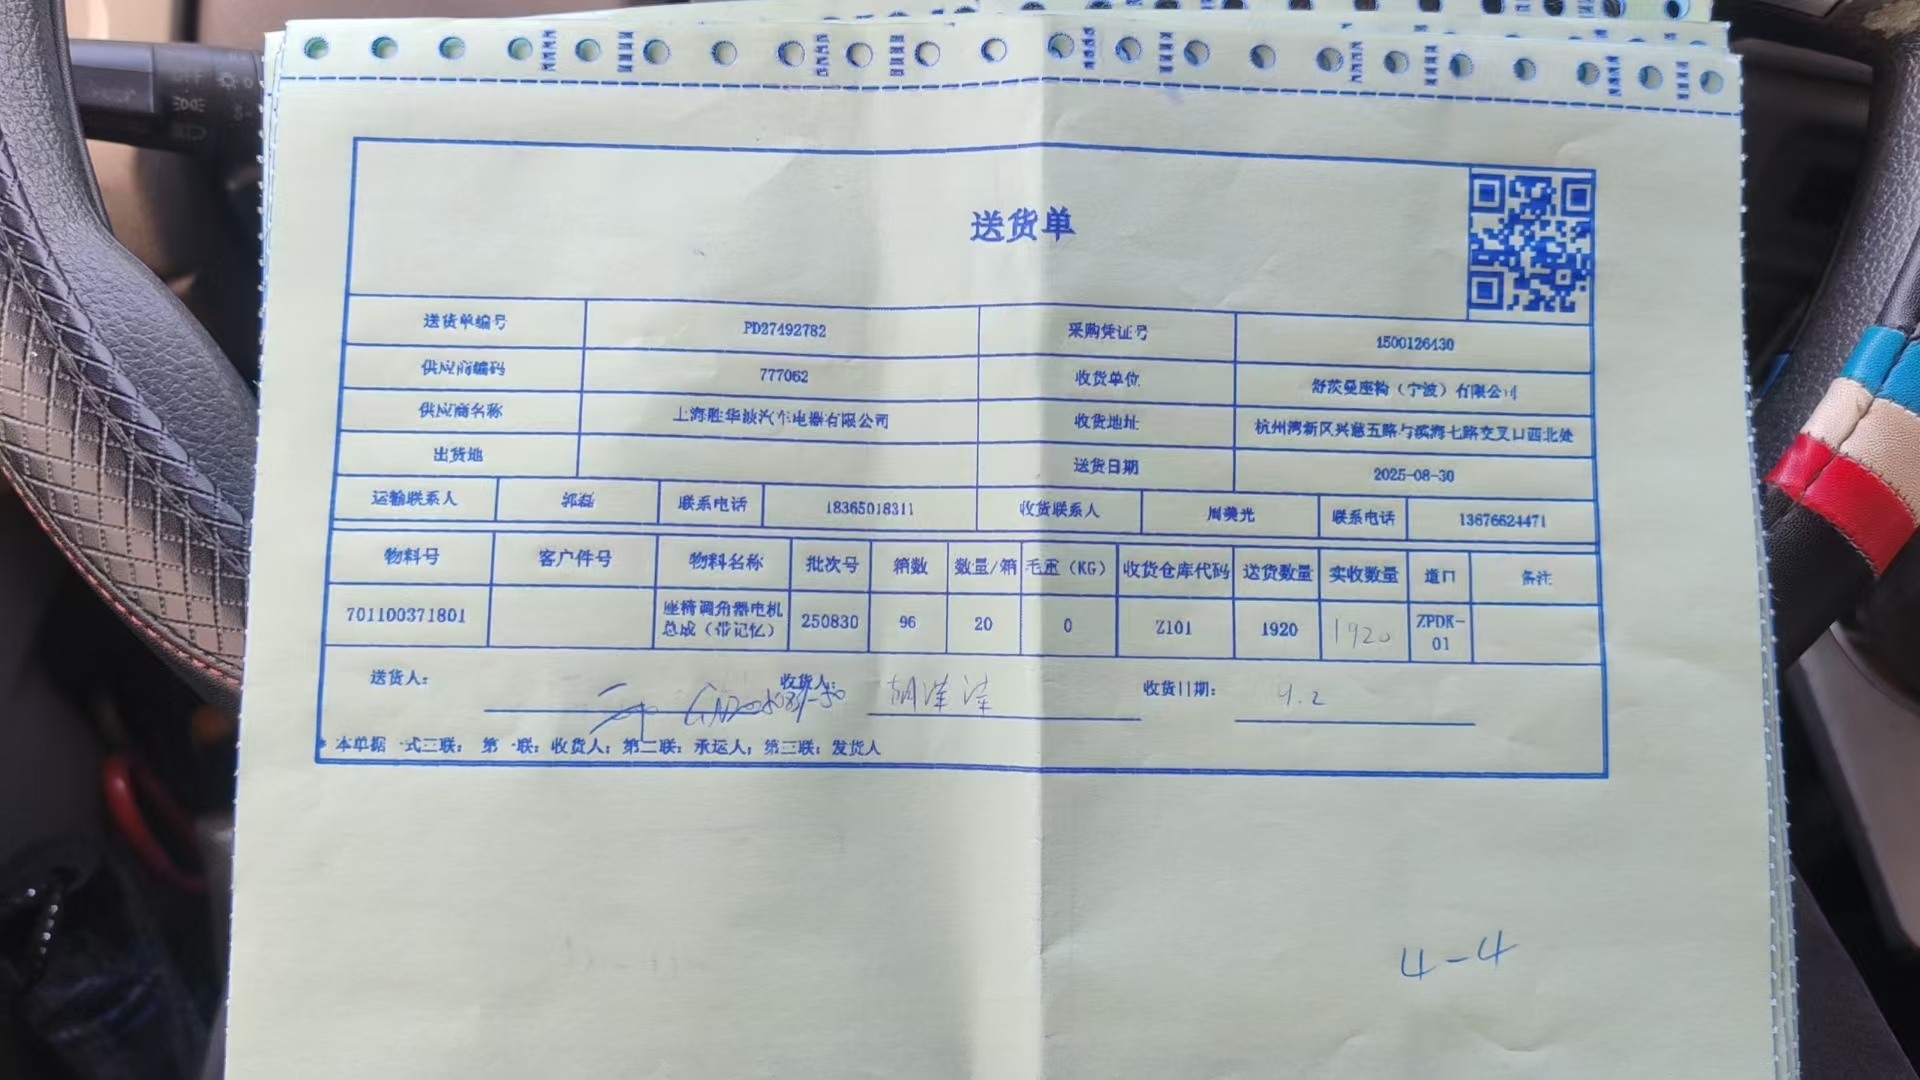 送货单
送货单编号 PD27492782 采购凭证号 1500126430
供应商编码 777062 收货单位 舒茨曼座椅（宁波）有限公司
供应商名称 上海胜华波汽车电器有限公司 收货地址 杭州湾新区兴慈五路与滨海七路交叉口西北处
出货地 送货日期 2025-08-30
运输联系人 郭磊 联系电话 18365018311 收货联系人 周美光 联系电话 13676624471
物料号 客户件号 物料名称 批次号 箱数 数量/箱 毛重（KG） 收货仓库代码 送货数量 实收数量 道口 备注
701100371801 座椅调角器电机总成（带记忆） 250830 96 20 0 Z101 1920 1920 ZPDK-01
送货人： 收货人： 收货日期： 9.2
* 本单据一式三联：第一联：收货人；第二联：承运人；第三联：发货人
4-4